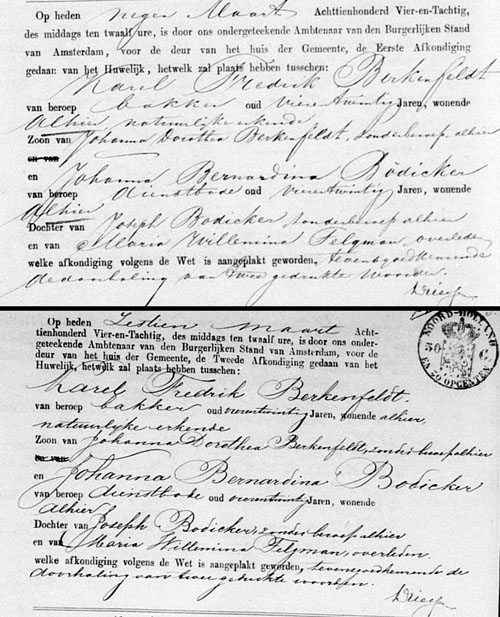 Op heden negen Maart Achttienhonderd Vier-en-Tachtig,
des middags ten twaalf ure, is door ons ondergeteekende Ambtenaar van den Burgerlijken Stand
van Amsterdam, voor de deur van het huis der Gemeente, de Eerste Afkondiging
gedaan van het Huwelijk, hetwelk zal plaats hebben tusschen:
Karel Fredrik Berkenfeldt
van beroep bakker oud vierentwintig Jaren, wonende
alhier natuurlijke erkende
Zoon van Johanna Dorothea Berkenfeldt, zonder beroep, alhier
en van
en Johanna Bernardina Bödicker
van beroep dienstbode oud vierentwintig Jaren, wonende
alhier
Dochter van Joseph Bodicker zonder beroep alhier
en van Maria Willemina Felgman, overleden
welke afkondiging volgens de Wet is aangeplakt geworden, tevens goedkeurende
de doorhaling van twee gedrukte woorden.
Op heden Zestien Maart Acht-
tienhonderd Vier-en-Tachtig, des middags ten twaalf ure, is door ons onder-
geteekende Ambtenaar van den Burgerlijken Stand van Amsterdam, voor de
deur van het huis der Gemeente, de Tweede Afkondiging gedaan van het
Huwelijk, hetwelk zal plaats hebben tusschen:
Karel Fredrik Berkenfeldt.
van beroep bakker oud vierentwintig Jaren, wonende alhier,
natuurlijke erkende
Zoon van Johanna Dorothea Berkenfeldt, zonder beroep alhier
en van
en Johanna Bernardina Bodicker
van beroep dienstbode oud vierentwintig Jaren, wonende
alhier
Dochter van Joseph Bodicker, zonder beroep alhier
en van Maria Willemina Felgman, overleden.
welke afkondiging volgens de Wet is aangeplakt geworden, tevens goedkeurende de
doorhaling van twee gedrukte woorden.
NOORD-HOLLAND
50 C.
EN 50 OPCENTEN